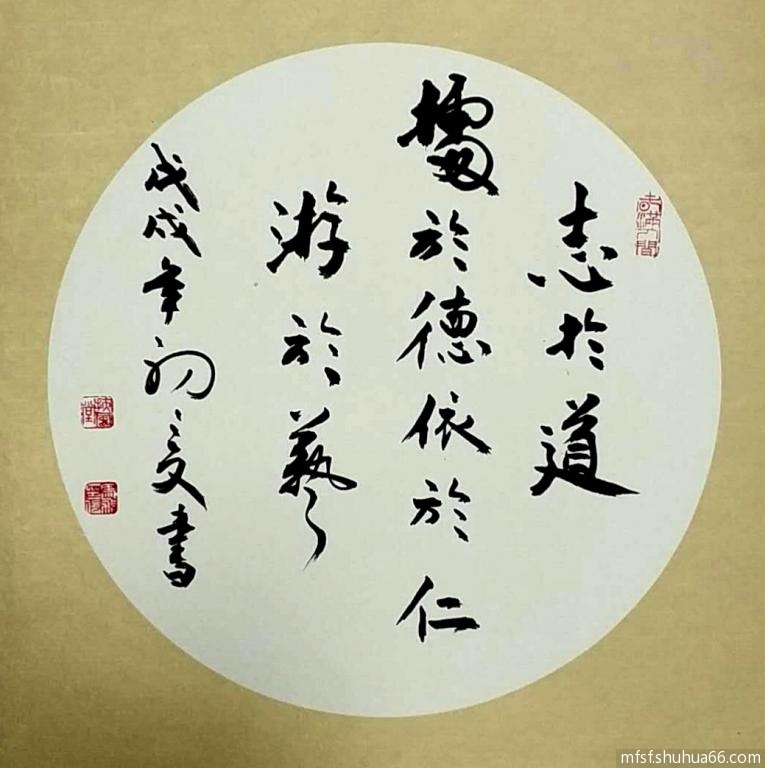 志於道
據於德依於仁
游於藝
戊戌年初夏書
mfsf.shuhua66.com